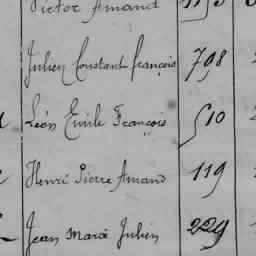 Victor Amand
Julien Constant françois 798
Léon Emile François 510
Henri Pierre Amand 119
Jean Marie Julien 229